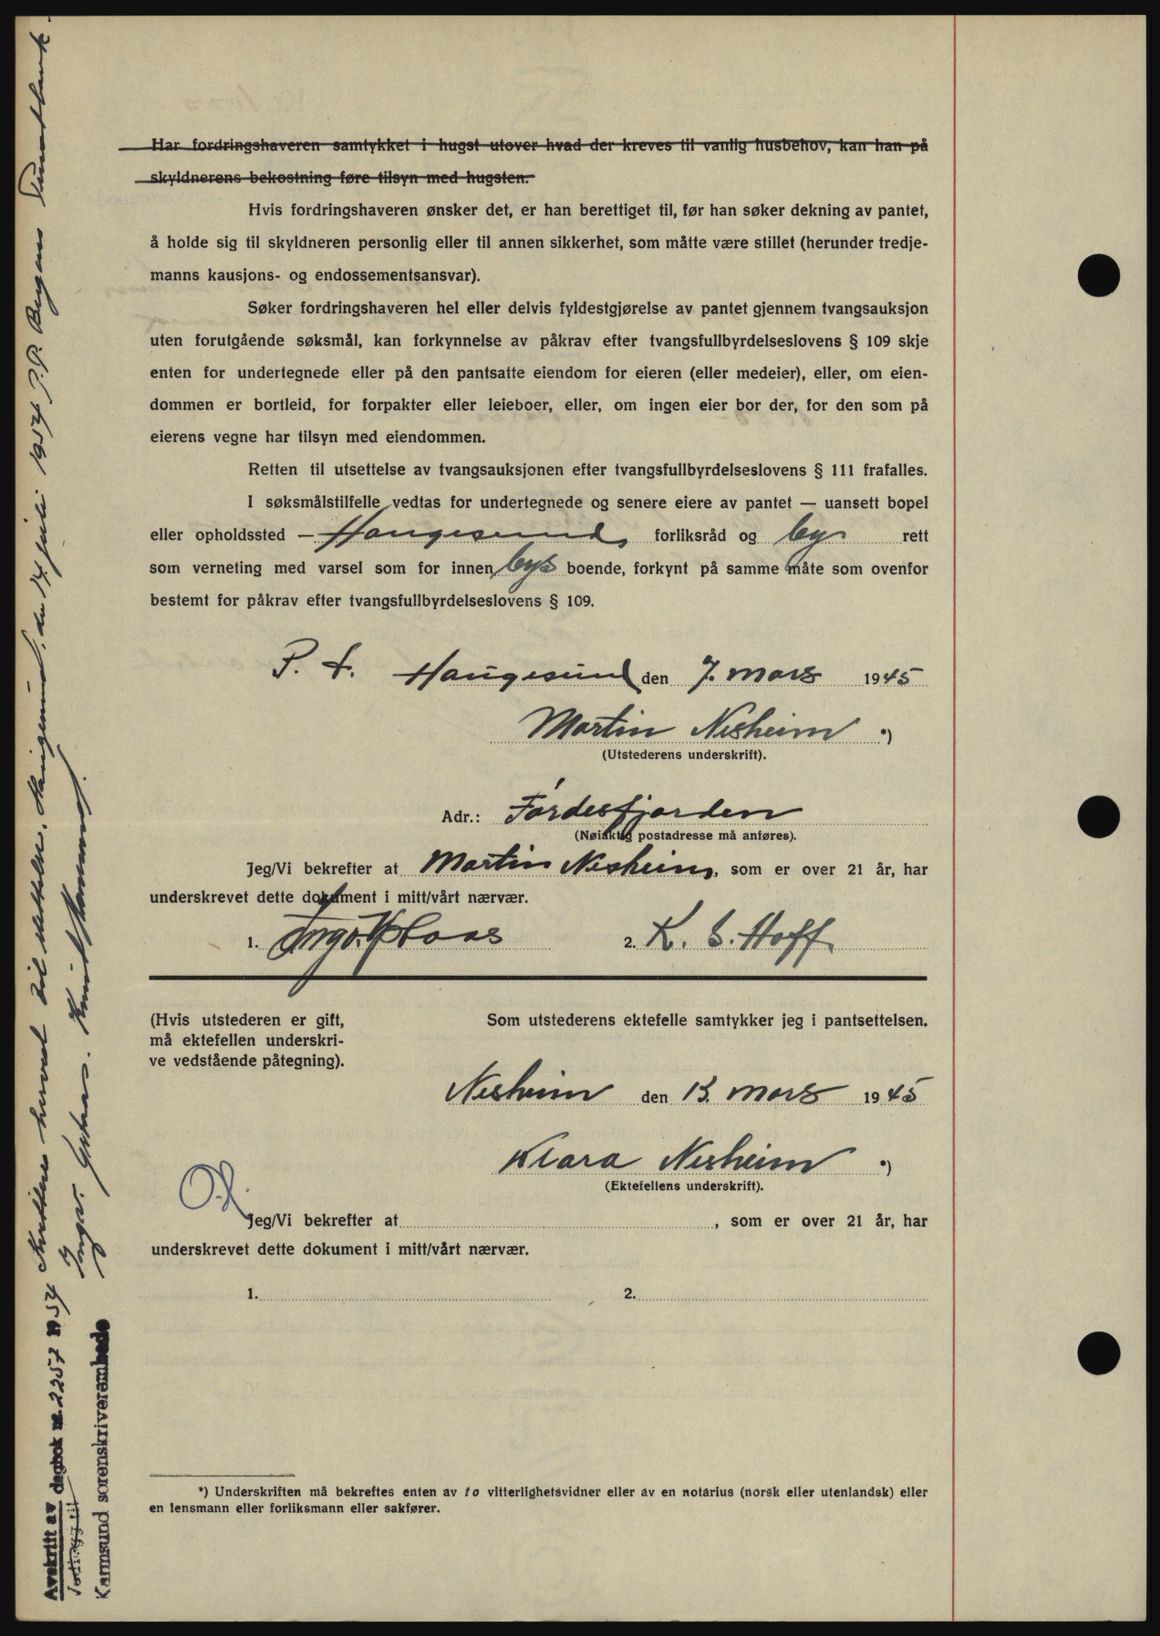 Har fordringshaveren samtykket i hugst utover hvad der kreves til vanlig husbehov, kan han på
skyldnerens bekostning føre tilsyn med hugsten.
Hvis fordringshaveren ønsker det, er han berettiget til, før han søker dekning av pantet,
å holde sig til skyldneren personlig eller til annen sikkerhet, som måtte være stillet (herunder tredje-
manns kausjons- og endossementsansvar).
Søker fordringshaveren hel eller delvis fyldestgjørelse av pantet gjennem tvangsauksjon
uten forutgående søksmål, kan forkynnelse av påkrav efter tvangsfullbyrdelseslovens § 109 skje
enten for undertegnede eller på den pantsatte eiendom for eieren (eller medeier), eller, om eien-
dommen er bortleid, for forpakter eller leieboer, eller, om ingen eier bor der, for den som på
eierens vegne har tilsyn med eiendommen.
Retten til utsettelse av tvangsauksjonen efter tvangsfullbyrdelseslovens § 111 frafalles.
I søksmålstilfelle vedtas for undertegnede og senere eiere av pantet — uansett bopel
eller opholdssted — Haugesunds forliksråd og by rett
som verneting med varsel som for innen bys boende, forkynt på samme måte som ovenfor
bestemt for påkrav efter tvangsfullbyrdelseslovens § 109.
P. t. Haugesund den 7. mars 1945
Martin Nesheim *)
(Utstederens underskrift).
Adr.: Førdesfjorden
(Nøiaktig postadresse må anføres).
Jeg/Vi bekrefter at Martin Nesheim, som er over 21 år, har
underskrevet dette dokument i mitt/vårt nærvær.
1. 2. K. S. Hoff
(Hvis utstederen er gift,
må ektefellen underskri-
ve vedstående påtegning).
Som utstederens ektefelle samtykker jeg i pantsettelsen.
Nesheim den 13. mars 1945
Klara Nesheim *)
(Ektefellens underskrift).
O.K.
Jeg/Vi bekrefter at , som er over 21 år, har
underskrevet dette dokument i mitt/vårt nærvær.
1. 2.
*) Underskriften må bekreftes enten av to vitterlighetsvidner eller av en notarius (norsk eller utenlandsk) eller
en lensmann eller forliksmann eller sakfører.
Avskrift av dagbok nr. 2257 1954 Kvitteres herved til utslettelse, Haugesund, den 14 juli 1954 P.P. Bergens Privatbank
Karmsund sorenskriverembede